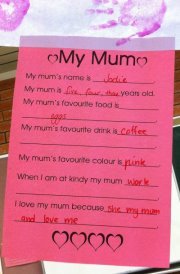 My Mum
My mum's name is Jodie
My mum is five, four, three years old.
My mum's favourite food is
eggs
My mum's favourite drink is coffee
My mum's favourite colour is pink
When I am at kindy my mum work
I love my mum because she my mum
and love me